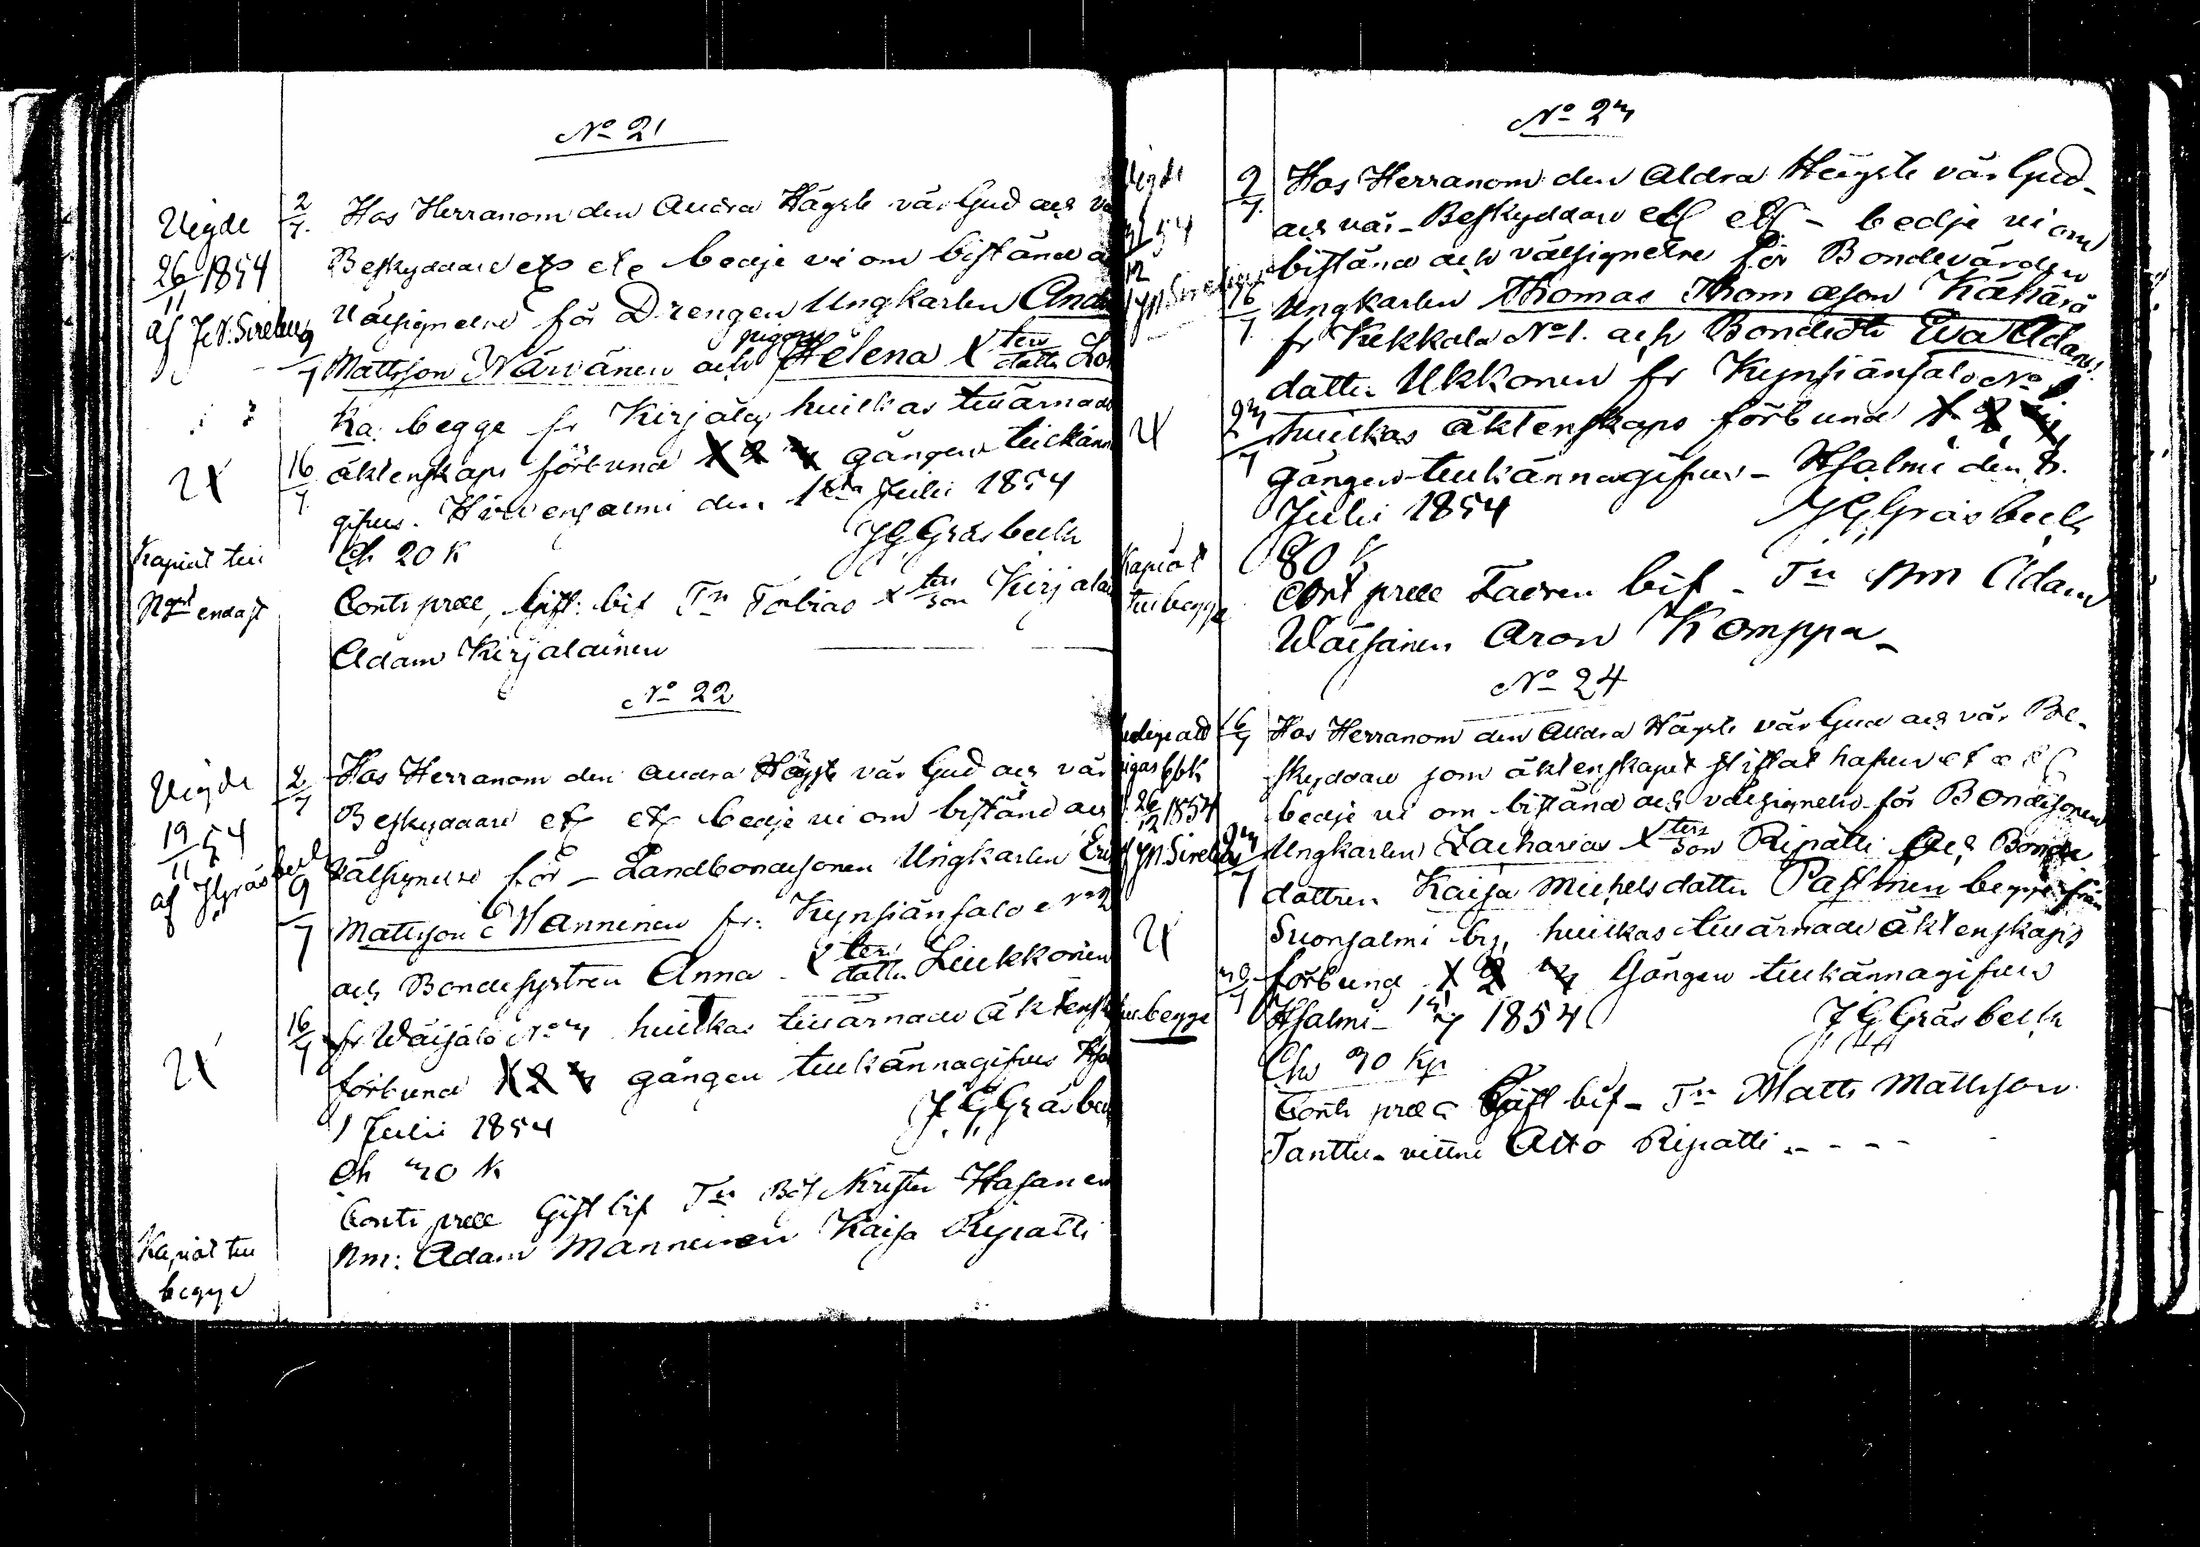 No 21
Vigde
26/11 1854
af
2/7
Hos Herranom den Andra Högste vår Gud och
Beskyddare etc etc bedje vi om bistånd
välsignelse för Drengen Ungkarlen And
9/7
Mattsson Närvänen och pigan Helena Xters dotter Lo
ka begge fr Kirjala hvilkas tillärnade
16/7
äktenskaps förbund 1 2 3 gången tillkänna
gifves. Hirvensalmi den 1sta Julii 1854
Ch 20 K
JGGråsbeck
Kapiat till
endast
Contr præc, Gift: bif Tn Tobias Xters son Kirjalai
Adam Kirjalainen
No 22
Vigde
19/11 54
af JGråsbeck
2/7
Hos Herranom den Andra Högste vår Gud och vår
Beskyddare etc etc bedje vi om bistånd och
välsignelse för - Landbondesonen Ungkarlen Eri
9/7
Mattsson Manninen fr: Kynsiänsalo No 2
och Bondesystren Anna Xters dotter Liukkonen
16/7
fr Väisälä No 3 hvilkas tillärnade äktensk
förbund 1 2 3 gången tillkännagifves
1 Julii 1854
JGGråsbec
Ch 30 K
Contr præc Gift bif Tn Krister Hasanen
Nm: Adam Manninen Kaisa Ripatti
Kapiat till
begge
No 23
Vigde
9/7
Hos Herranom den Aldra Högste vår Gud
och vår Beskyddare etc etc - bedje vi om
bistånd och välsignelse för Bondevärden
16/7
Ungkarlen Thomas Thomasson Kähärä
fr Kekkola No 1. och Bondedotr Eva Adams
dotter Ukkonen fr Kynsiänsalo No
23/7
hvilkas äktenskaps förbund 1 2 3
gången tillkännagifves - Hsalmi den 8.
Julii 1854
JGGråsbeck
80 K
Kapiat
till begge
Cont præc Fadren bif - Tn Nm Adam
Wäisänen Aron Komppa -
No 24
16/7
Hos Herranom den Aldra Högste vår Gud och vår Be-
skyddare som äktenskapet stiftat hafver etc etc
bedje vi om bistånd och välsignelse för Bondesonen
26/12 1854
23/7
Ungkarlen Zacharias Xters son Ripatti och Bonde
dottren Kaisa Michelsdotter Pasonen begge från
Suonsalmi by, hvilkas tillärnade äktenskaps
30/7
förbund 1 2 3 gången tillkännagifves
Hsalmi - 15/7 1854
JGGråsbeck
till begge
Ch 30 Kp
Contr præc Gift bif - Tn Matts Mattsson
Tanttu - vittne Atto Ripatti - - - -